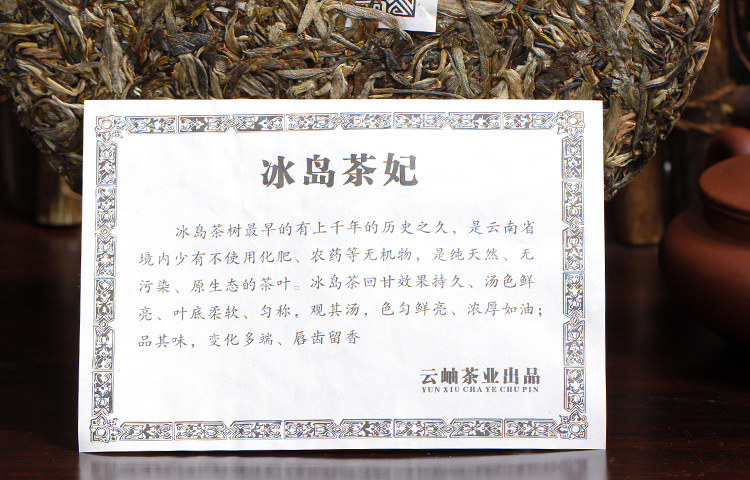 冰岛茶妃
冰岛茶树最早的有上千年的历史之久，是云南省
境内少有不使用化肥、农药等无机物，是纯天然、无
污染、原生态的茶叶。冰岛茶回甘效果持久、汤色鲜
亮、叶底柔软、匀称，观其汤，色匀鲜亮、浓厚如油；
品其味，变化多端、唇齿留香
云岫茶业出品
YUN XIU CHA YE CHU PIN